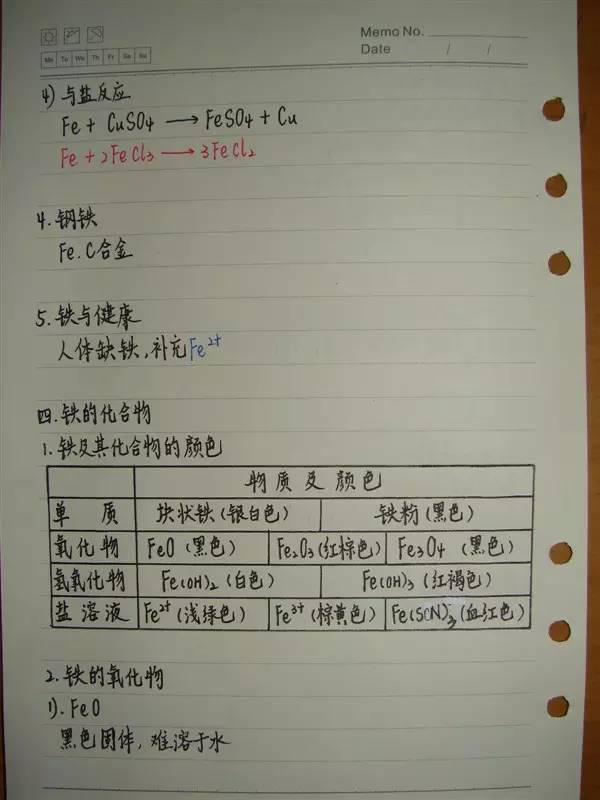 Memo No.
Mo Tu We Th Fr Sa Su
Date / /
4) 与盐反应
Fe + CuSO4 ⟶ FeSO4 + Cu
Fe + 2FeCl3 ⟶ 3FeCl2
4. 钢铁
Fe.C合金
5. 铁与健康
人体缺铁,补充Fe2+
四. 铁的化合物
1. 铁及其化合物的颜色
物质及颜色
单质 块状铁(银白色) 铁粉(黑色)
氧化物 FeO (黑色) Fe2O3(红棕色) Fe3O4 (黑色)
氢氧化物 Fe(OH)2 (白色) Fe(OH)3 (红褐色)
盐溶液 Fe2+ (浅绿色) Fe3+ (棕黄色) Fe(SCN)3 (血红色)
2. 铁的氧化物
1). FeO
黑色固体, 难溶于水